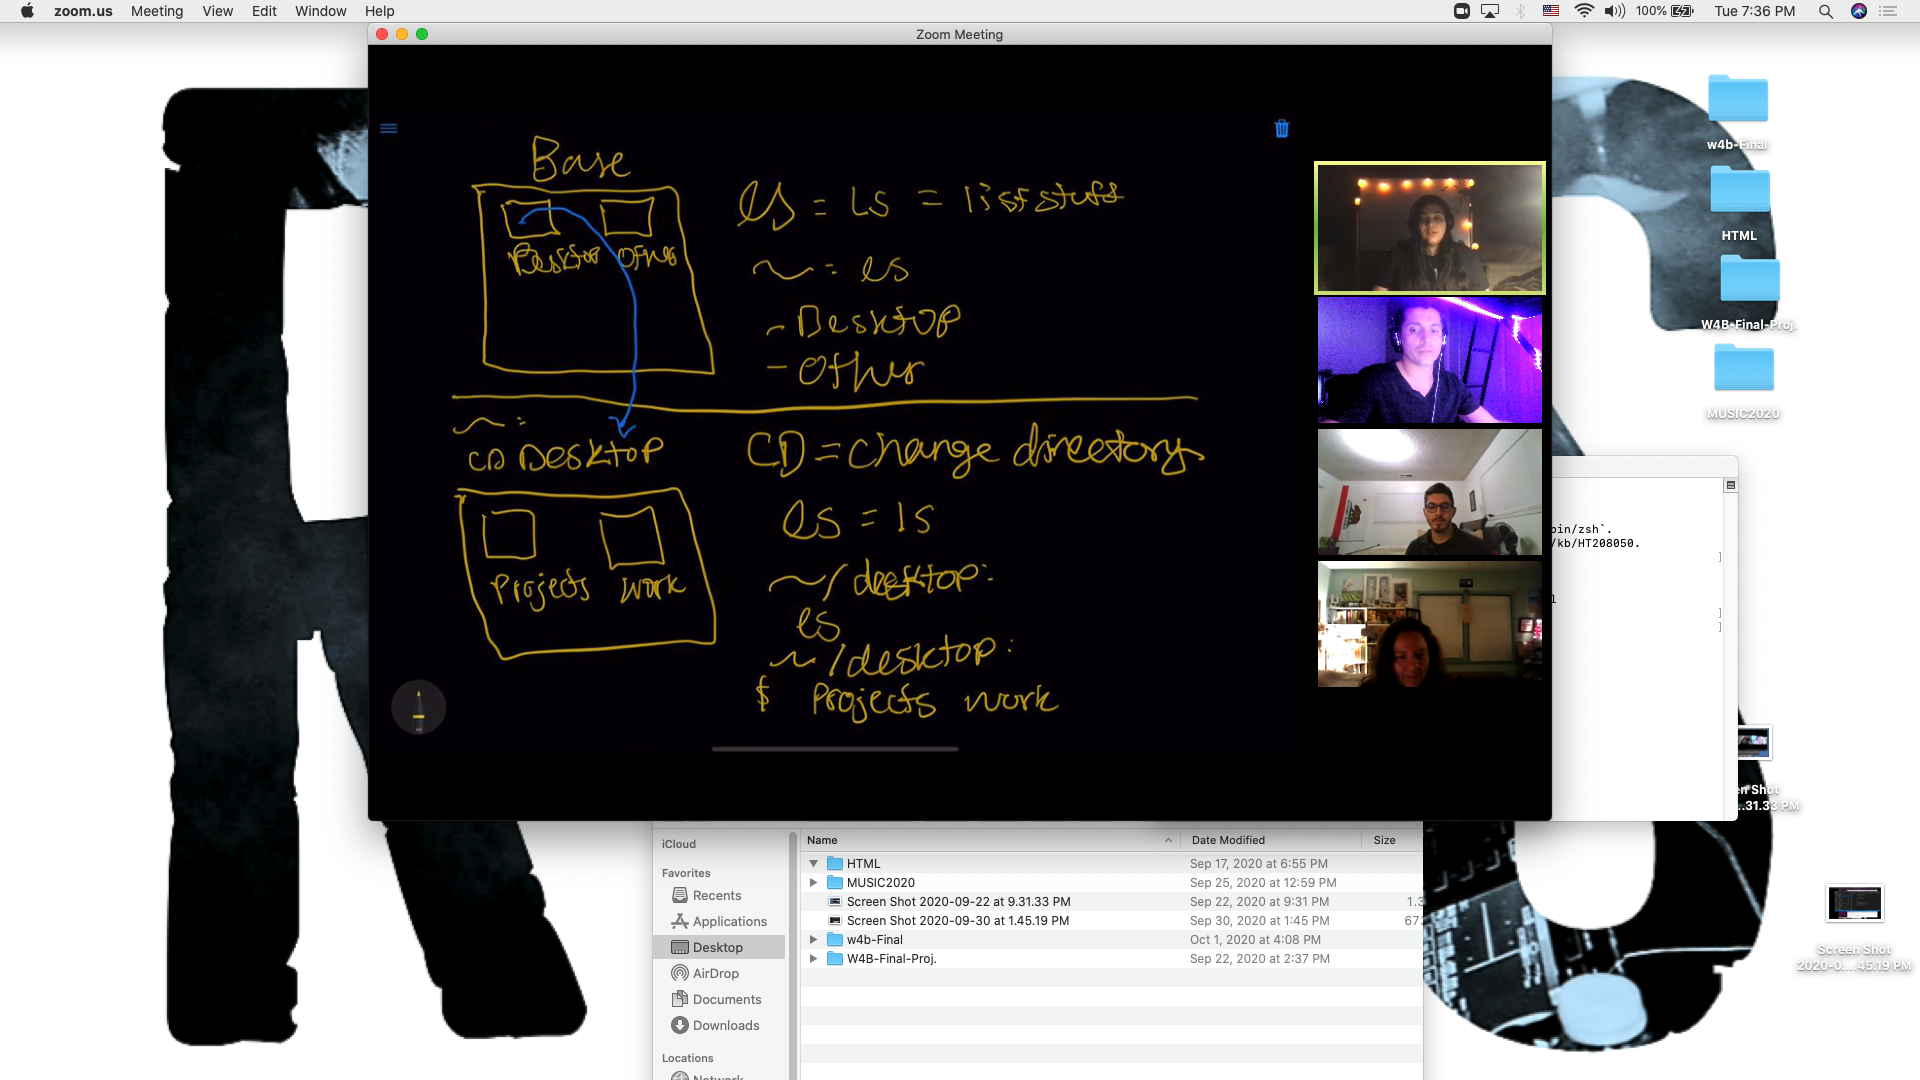 zoom.us Meeting View Edit Window Help 100% Tue 7:36 PM
Zoom Meeting
Base
Desktop Other
ls = Ls = list stuff
~ : ls
- Desktop
- Other
~ :
CD Desktop
Projects Work
CD = change directory
ls = ls
~/desktop:
ls
~/desktop:
$ Projects work
w4b-Final
HTML
W4B-Final-Proj.
MUSIC2020
bin/zsh`.
/kb/HT208050.
]
l
]
]
en Shot
...31.33 PM
Screen Shot
2020-0....45.19 PM
iCloud
Favorites
Recents
Applications
Desktop
AirDrop
Documents
Downloads
Locations
Network
Name Date Modified Size
HTML Sep 17, 2020 at 6:55 PM
MUSIC2020 Sep 25, 2020 at 12:59 PM
Screen Shot 2020-09-22 at 9.31.33 PM Sep 22, 2020 at 9:31 PM 1.3
Screen Shot 2020-09-30 at 1.45.19 PM Sep 30, 2020 at 1:45 PM 673
w4b-Final Oct 1, 2020 at 4:08 PM
W4B-Final-Proj. Sep 22, 2020 at 2:37 PM